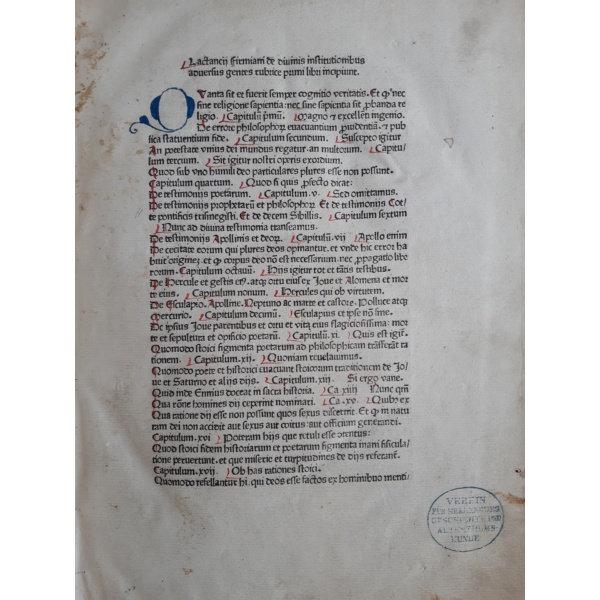 Lactancii Firmiani de diuinis institutionibus
aduersus gentes rubrice primi libri incipiunt.
QVanta sit et fuerit semper cognitio veritatis. Et qꝫ nec
sine religione sapientia: nec sine sapientia sit ꝓbanda re
ligio. Capitulū pꝛimū. Magno & excellēti ingenio.
De errore philosophoꝝ euacuantium ꝓuidentiā. & pub
lica statuentium fide. Capitulum secundum. Suscepto igitur
An potestate vnius dei mundus regatur an multorum. Capitu/
lum tercium. Sit igitur nostri operis exordium.
Quod sub vno humili deo particulares plures esse non possunt.
Capitulum quartum. Quod si quis ꝓfecto dicat:
De testimonijs poetarum. Capitulum .v. Sed omittamus.
De testimonijs prophetarū et philosophoꝝ Et de testimonijs
pontificis trismegisti. Et de decem Sibillis. Capitulum sextum
Nunc ad diuina testimonia transeamus.
De testimonijs Apollinis et deoꝝ. Capitulū .vij Apollo enim
De cecitate eorum qui plures deos opinantur. et vnde hic error ha
buit origineꝫ. et qꝫ corpus deo nō est necessarium. nec ꝓpogatio libe
rorum. Capitulum octauū. Hijs igitur tot et tātis testibus.
De Hercule et gestis eiꝰ. atqꝫ ortu eius ex Joue et Alomena et mor
te eius. Capitulum nonum. Hercules qui ob virtutem.
De Esculapio. Apolline. Neptuno ac marte et castore. Polluce atqꝫ
Mercurio. Capitulum decimū. Esculapius et ipse nō sine.
De ipsius Joue parentibus et ortu et vita eius flagiciosissima: mor
te et sepultura et opificio poetarū. Capitulū .xi. Quis est igiṫ.
Quomodo stoici figmenta poetarum ad philosophicam trāsferāt ra
tionem. Capitulum .xij. Quoniam reuelauimus.
Quomodo poete et historici euacuant stoicorum traditionem de Jo/
ue et Saturno et alijs dijs. Capitulum .xiij. Si ergo vane.
Quid inde Ennius doceat in sacra historia. Ca xiiij Nunc qm̄
Qua rōne homines dij ceperint nominari. Ca .xv. Quibꝰ ex
Qua ratione dij esse non possunt quos sexus discernit. Et qꝫ in natu
ram dei non accidit aut sexus aut coitus: aut officium generandi.
Capitulum .xvi Postꝛeam hijs que retuli esse
Quod stoici fidem historiarum et poetarum figmenta mani ficicula/
tione preuertunt. et que miserie et turpitudines de dijs referanṫ.
Capitulum .xvij. Ob has rationes stoici.
Quomodo refellantur hi. qui deos esse factos ex hominibus menti/
VEREIN
FÜR
GESCHICHTE UND
ALTERTHUMS-
KUNDE